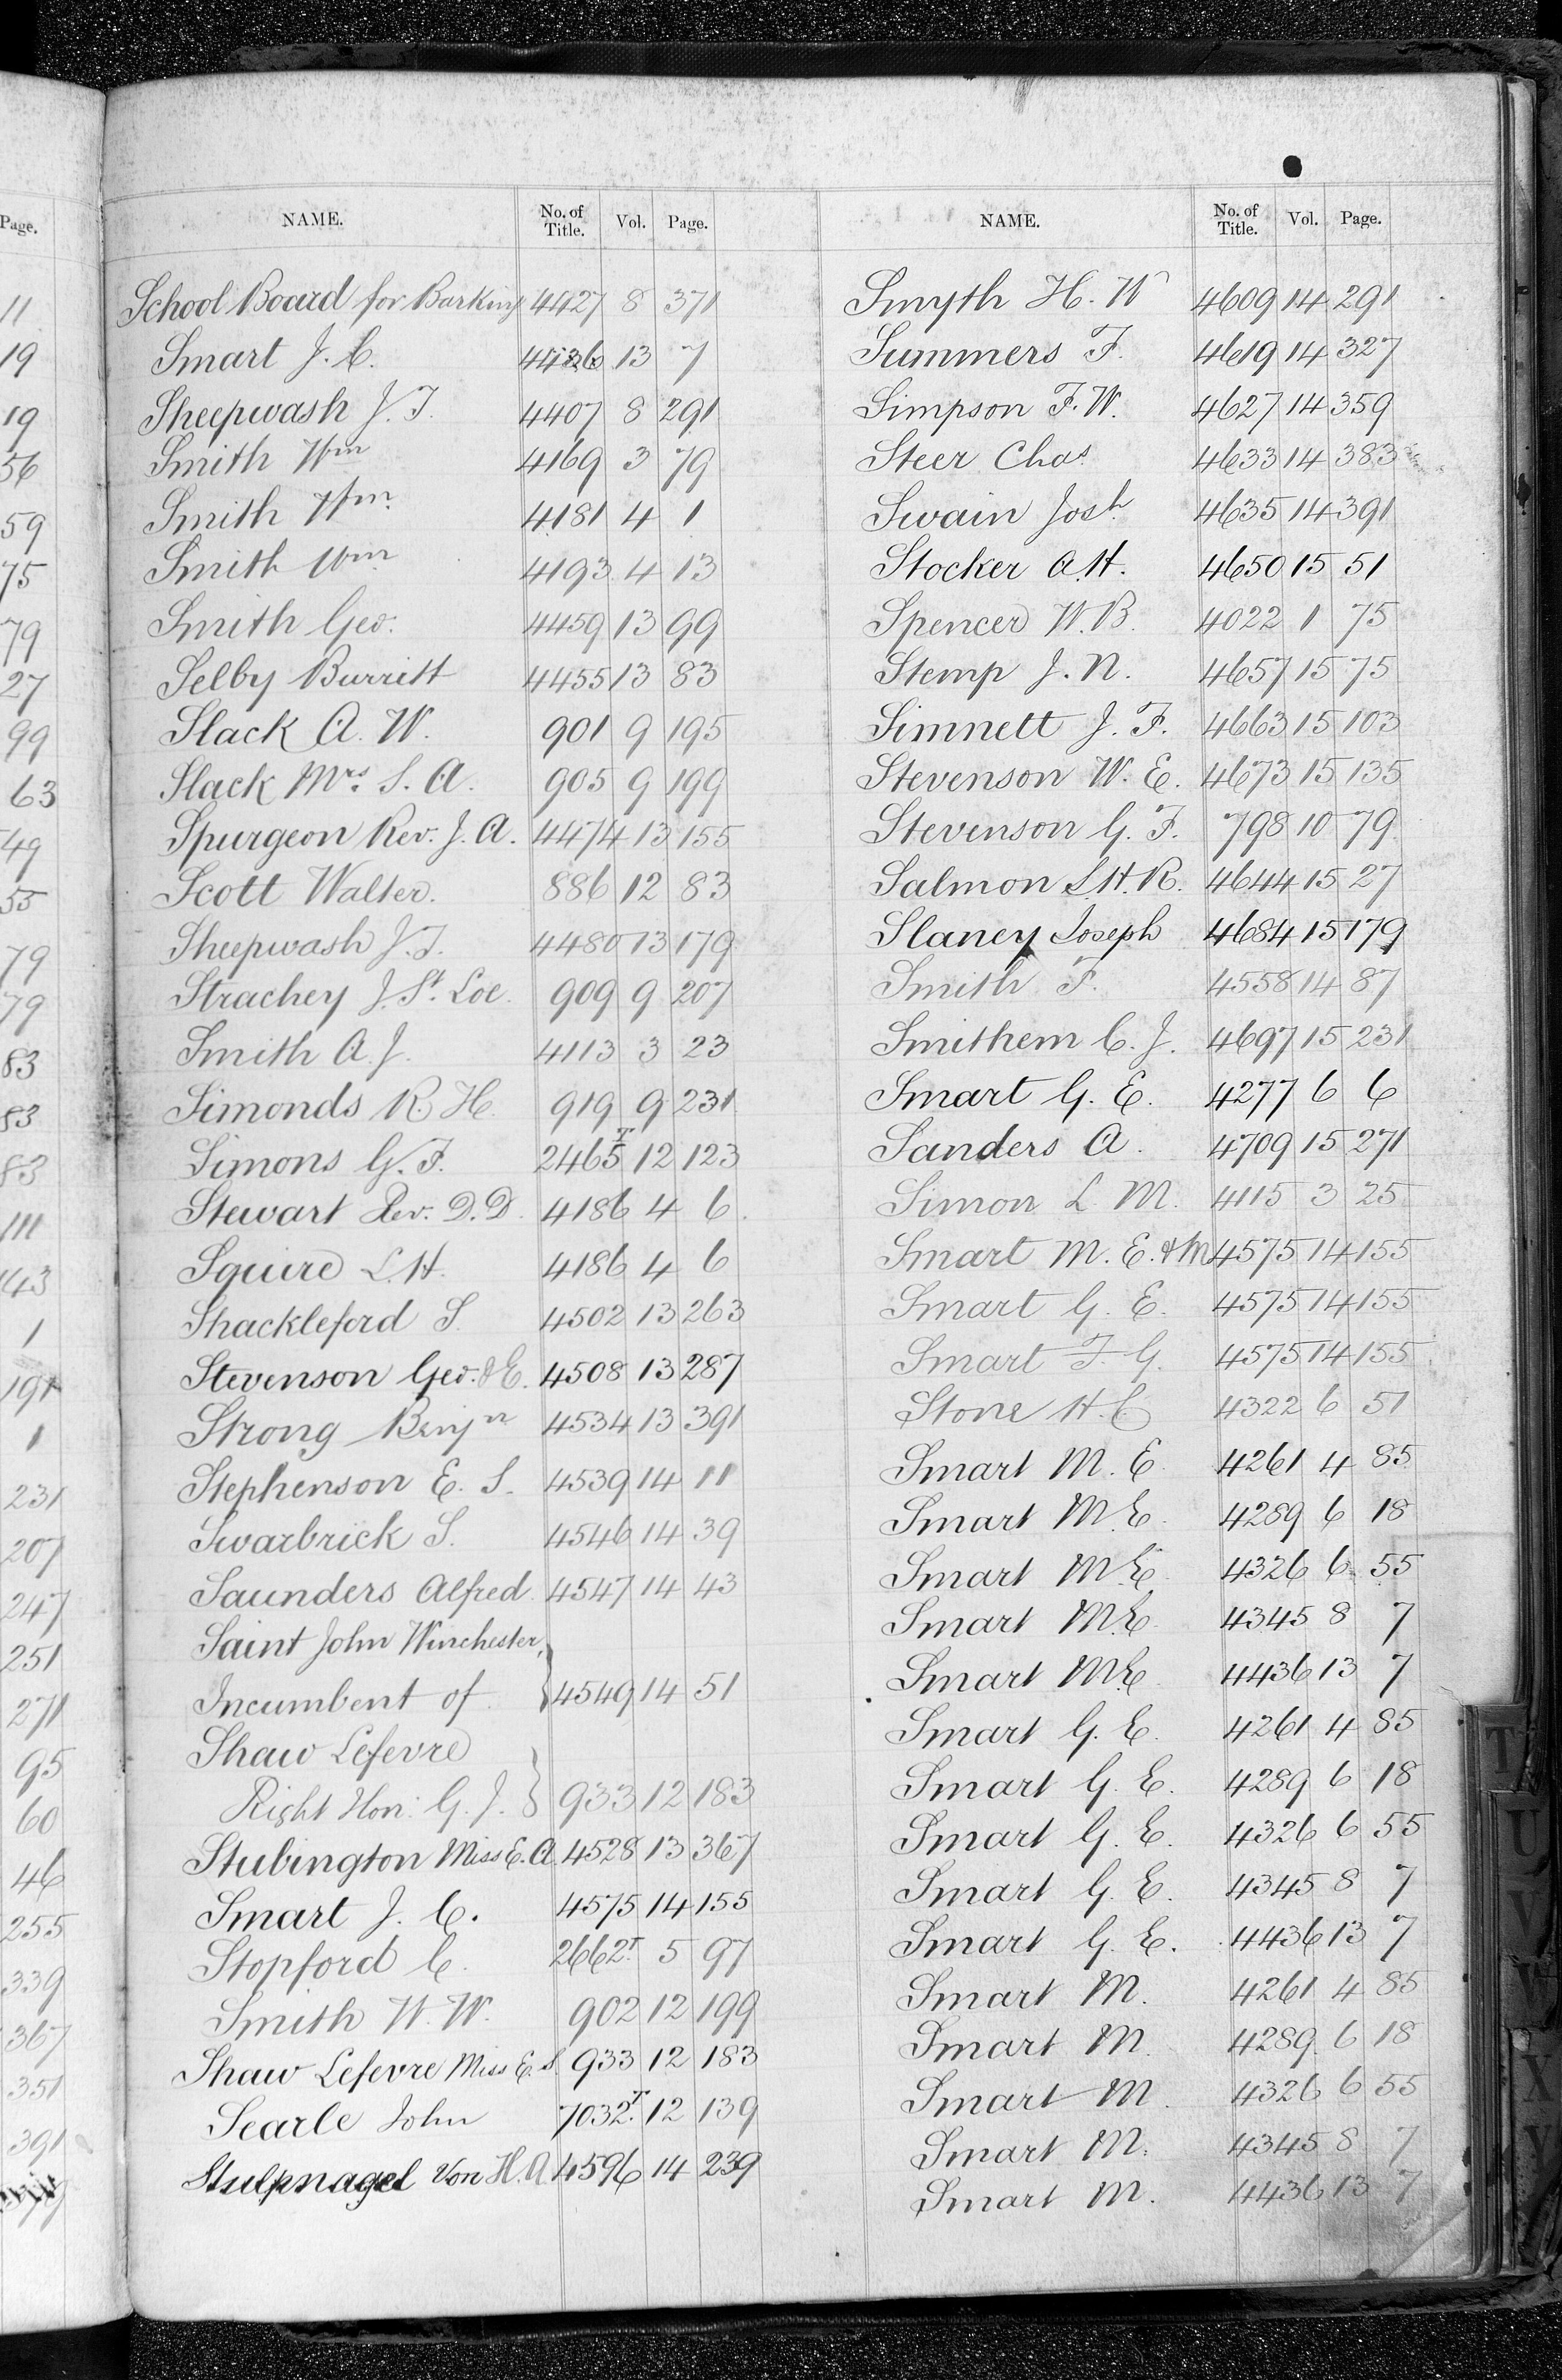 Page.
11
19
19
56
59
75
79
27
99
63
49
55
79
79
83
83
83
111
143
1
191
1
231
207
247
251
271
95
60
46
255
339
367
351
391
NAME. No. of Title. Vol. Page.
School Board for Barking 4427 8 371
Smart J. C. 4436 13 7
Sheepwash J. T. 4407 8 291
Smith Wm 4169 3 79
Smith Wm. 4181 4 1
Smith Wm 4193 4 13
Smith Geo. 4459 13 99
Selby Burritt 4455 13 83
Slack A. W. 901 9 195
Slack Mrs. S. A. 905 9 199
Spurgeon Rev. J. A. 4474 13 155
Scott Walter. 886 12 83
Sheepwash J. T. 4480 13 179
Strachey J. St. Loe. 909 9 207
Smith A. J. 4113 3 23
Simonds R. H. 919 9 231
Simons G. F. 2465T 12 123
Stewart Rev. D. D. 4186 4 6.
Squire L. H. 4186 4 6
Shackleford S. 4502 13 263
Stevenson Geo. & E. 4508 13 287
Strong Benjn 4534 13 391
Stephenson E. S. 4539 14 11
Swarbrick S. 4546 14 39
Saunders Alfred 4547 14 43
Saint John Winchester,
Incumbent of } 4549 14 51
Shaw Lefevre
Right Hon: G. J. } 933 12 183
Stubington Miss E. A. 4528 13 367
Smart J. C. 4575 14 155
Stopford C. 2662T. 5 97
Smith W. W. 902 12 199
Shaw Lefevre Miss E. S. 933 12 183
Searle John 7032T. 12 139
Stulpnagel Von H. A. 4596 14 239
NAME. No. of Title. Vol. Page.
Smyth H. W 4609 14 291
Summers F. 4619 14 327
Simpson F. W. 4627 14 359
Steer Chas. 4633 14 383
Swain Josh. 4635 14 391
Stocker A. H. 4650 15 51
Spencer W. B. 4022 1 75
Stemp J. N. 4657 15 75
Simnett J. F. 4663 15 103
Stevenson W. E. 4673 15 135
Stevenson G. F. 798 10 79
Salmon S. H. R. 4644 15 27
Slaney Joseph 4684 15 179
Smith F. 4558 14 87
Smithem C. J. 4697 15 231
Smart G. E. 4277 6 6
Sanders A. 4709 15 271
Simon L. M. 4115 3 25
Smart M. E. & M 4575 14 155
Smart G. E. 4575 14 155
Smart F. G. 4575 14 155
Stone H. C 4322 6 51
Smart M. E. 4261 4 85
Smart M. E. 4289 6 18
Smart M. E. 4326 6 55
Smart M. E. 4345 8 7
Smart M. E 4436 13 7
Smart G. E. 4261 4 85
Smart G. E. 4289 6 18
Smart G. E. 4326 6 55
Smart G. E. 4345 8 7
Smart G. E. 4436 13 7
Smart M. 4261 4 85
Smart M. 4289 6 18
Smart M. 4326 6 55
Smart M. 4345 8 7
Smart M. 4436 13 7
T
U
V
W
X
Y